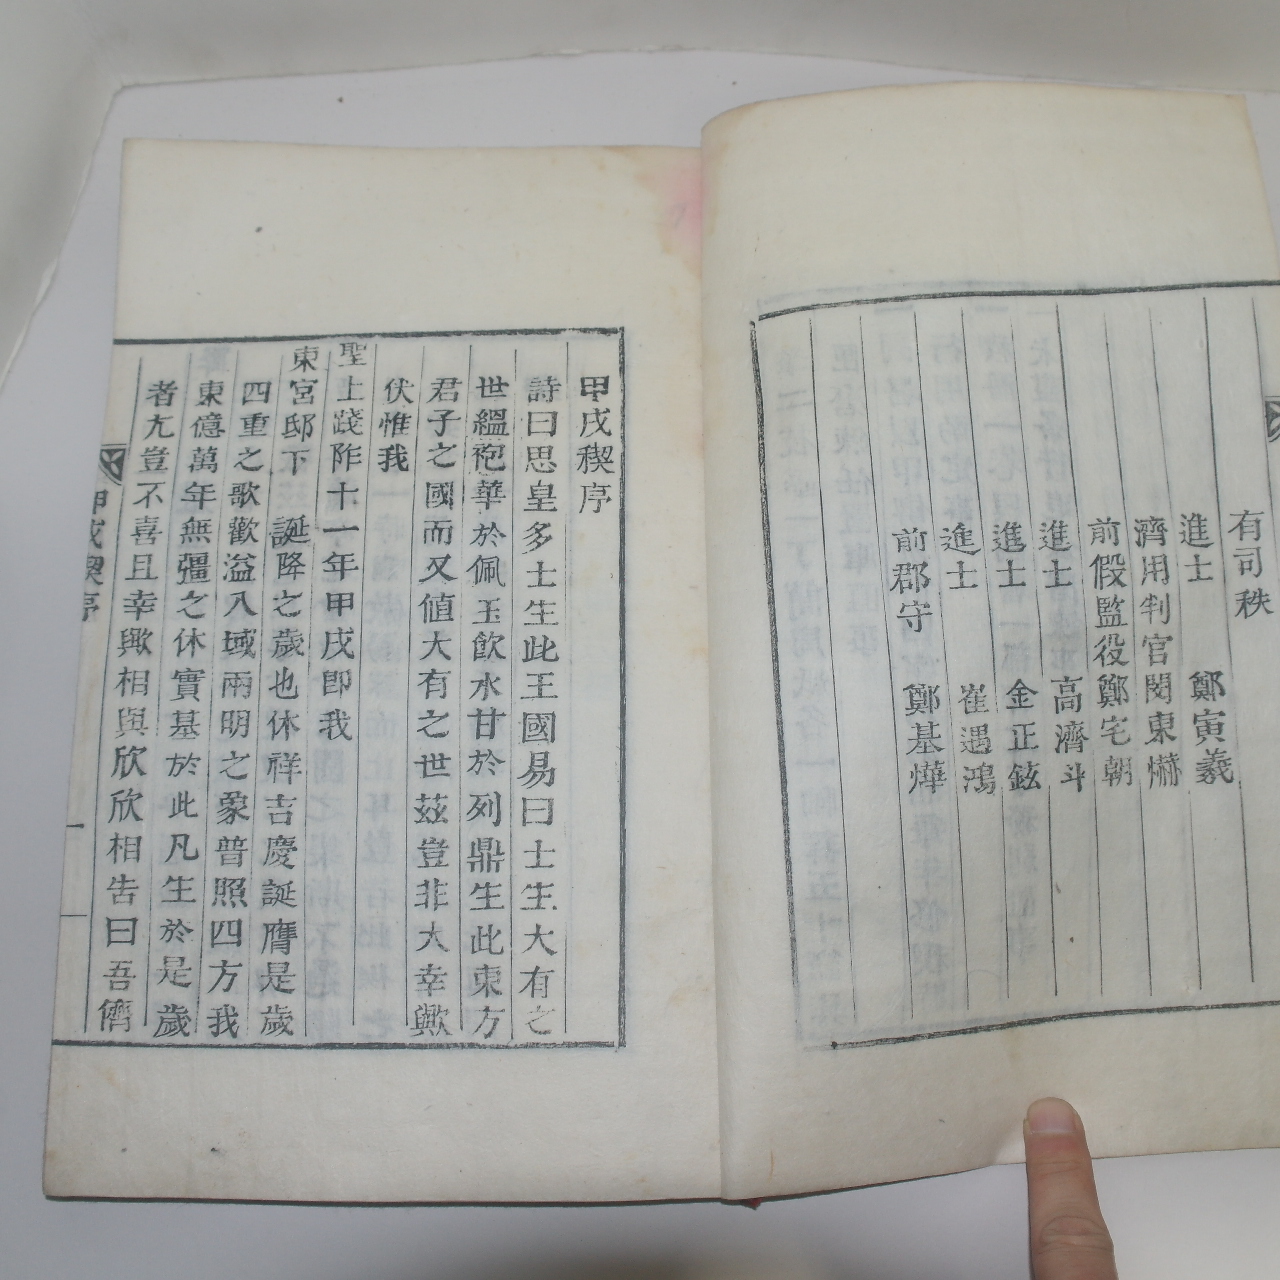 有司秩
進士 鄭寅羲
濟用判官閔東爀
前假監役鄭宅朝
進士 高濟斗
進士 金正鉉
進士 崔遇鴻
前郡守 鄭基燁
甲戌稧序
詩曰思皇多士生此王國易曰士生大有之
世縕袍華於佩玉飮水甘於列鼎生此東方
君子之國而又値大有之世玆豈非大幸歟
伏惟我
聖上踐阼十一年甲戌卽我
東宮邸下 誕降之歲也休祥吉慶誕膺是歲
四重之歌歡溢八域兩明之象普照四方我
東億萬年無彊之休實基於此凡生於是歲
者尢豈不喜且幸歟相與欣欣相告曰吾儕
甲戌稧序
一